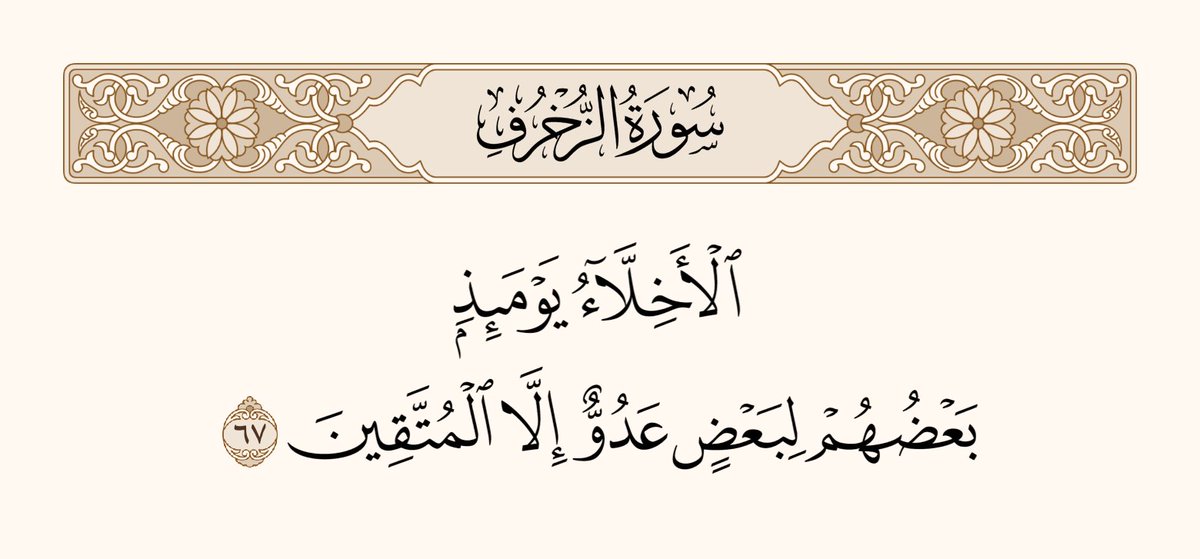 سُورَةُ الزُّخْرُفِ
ٱلۡأَخِلَّآءُ يَوۡمَئِذِۭ
بَعۡضُهُمۡ لِبَعۡضٍ عَدُوٌّ إِلَّا ٱلۡمُتَّقِينَ ٦٧